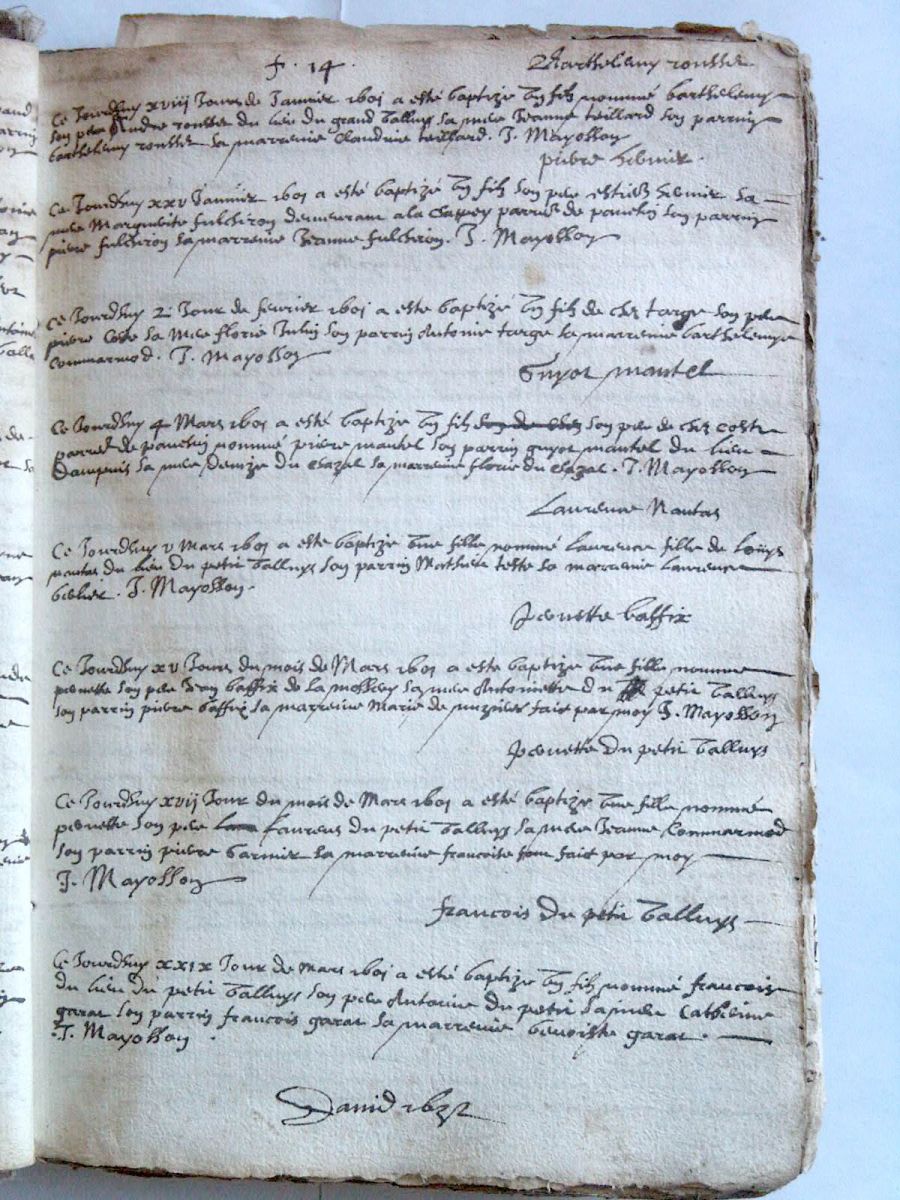 f. 14.
Barthelemy rousset
Ce Jourdhuy xviij Jours de Janvier 1601 a esté baptize ung filz nommé barthelemy
son pere Andre rousset du lieu du grand talluys sa mere Jeanne teillard son parrin
barthelemy rousset sa marreine Claudine teillard. J. Mayosson
pierre
Ce Jourdhuy xxv Janvier 1601 a esté baptizé ung filz son pere sa
mere Marguerite fulchiron demeurant a la parrisse de son parrin
pierre fulchiron sa marreine Jeanne fulchiron. J. Mayosson
Ce Jourdhuy 2. Jour de fevrier 1601 a esté baptizé ung filz de chez targe son pere
pierre Coste sa Mere florie Julin son parrin Antoine targe la marreine barthelemye
Commarmod. J. Mayosson
Guyot mantel
Ce Jourdhuy 4 Mars 1601 a esté baptize ung filz son pere de chez coste
parrisse de nommé pierre mantel son parrin guyot mantel du lieu
sa mere denize du sa marreine florie du J. Mayosson
Laurence Nantas
Ce Jourdhuy v Mars 1601 a esté baptize une fille nommé Laurence fille de Loüys
nantas du lieu du petit talluys son parrin Mathieu teste sa marreine Laurence
J. Mayosson.
peronette baffix
Ce Jourdhuy xv Jours du mois de Mars 1601 a esté baptize une fille nommée
peronette son pere Jean baffix de la sa mere Antoinette du petit talluys
son parrin pierre baffix sa marreine Marie de fait par moy J. Mayosson
peronette du petit talluys
Ce Jourdhuy xvij Jour du mois de Mars 1601 a esté baptize une fille nommé
peronette son pere Laurens du petit talluys sa mere Jeanne Commarmod
son parrin pierre garnier sa marreine francoise fait par moy
J. Mayosson
francois du petit talluys
Ce Jourdhuy xxix Jour de Mars 1601 a esté baptize ung filz nommé francois
du lieu du petit talluys son pere Antoine du petit sa mere Catherine
garat son parrin francois garat sa marreine benoiste garat.
J. Mayosson.